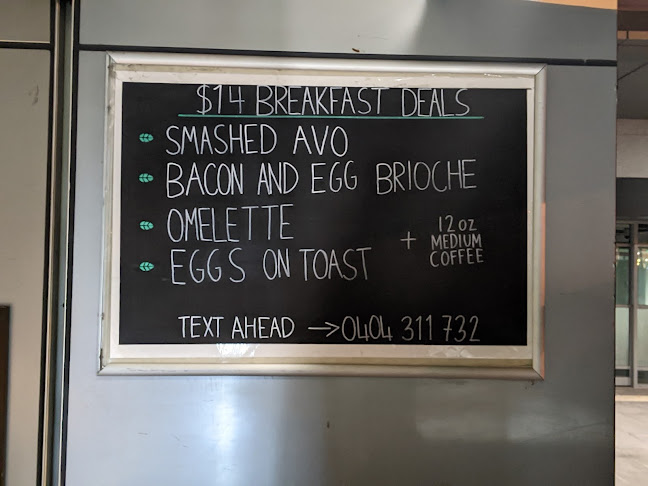 $14 BREAKFAST DEALS
SMASHED AVO
BACON AND EGG BRIOCHE
OMELETTE
EGGS ON TOAST
+ 12 oz
MEDIUM
COFFEE
TEXT AHEAD → 0404 311 732